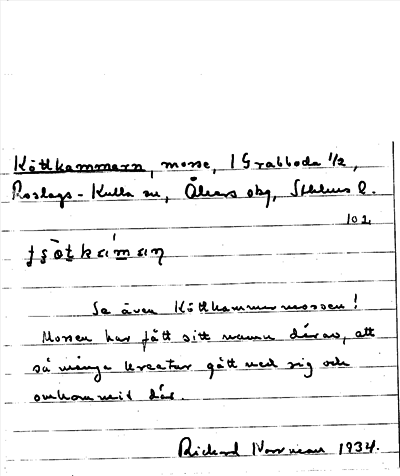 Köttkammarn, mosse, 1 Grabboda 1/2,
Roslags-Kulla sn, Åkers skg, Sthlms l.
102
Se även Köttkammarmossen!
Mossen har fått sitt namn därav, att
så många kreatur gått ned sig och
omkommit där.
Rickard Norrman 1934.